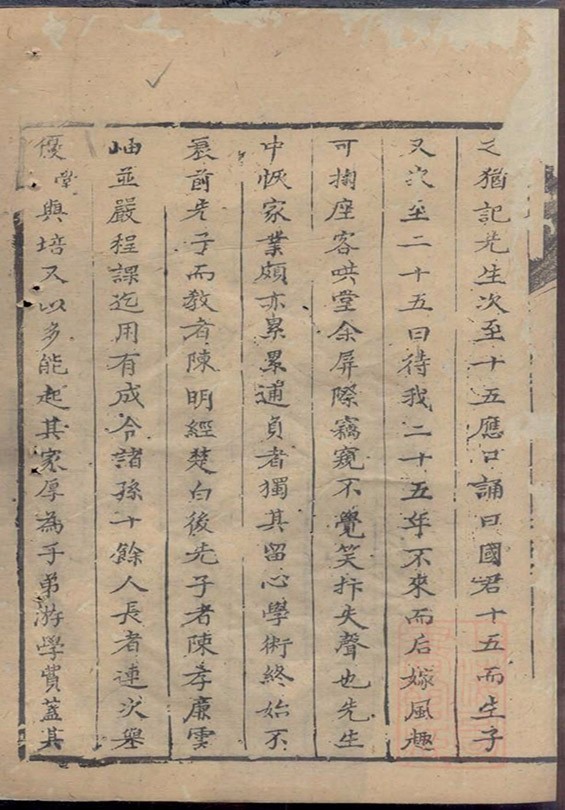 之猶記先生次至十五應口誦曰國君十五而生子
又次至二十五曰待我二十五年不來而后嫁風趣
可掬座客哄堂余屏際竊窺不覺笑抃失聲也先生
中恢家業頗亦累累逋負者獨其留心學術終始不
衰前先子而教者陳明經楚白後先子者陳孝廉雲
岫並嚴程課迄用有成今諸孫十餘人長者連次舉
優黌與培又以多能起其家厚為子弟游學費蓋其